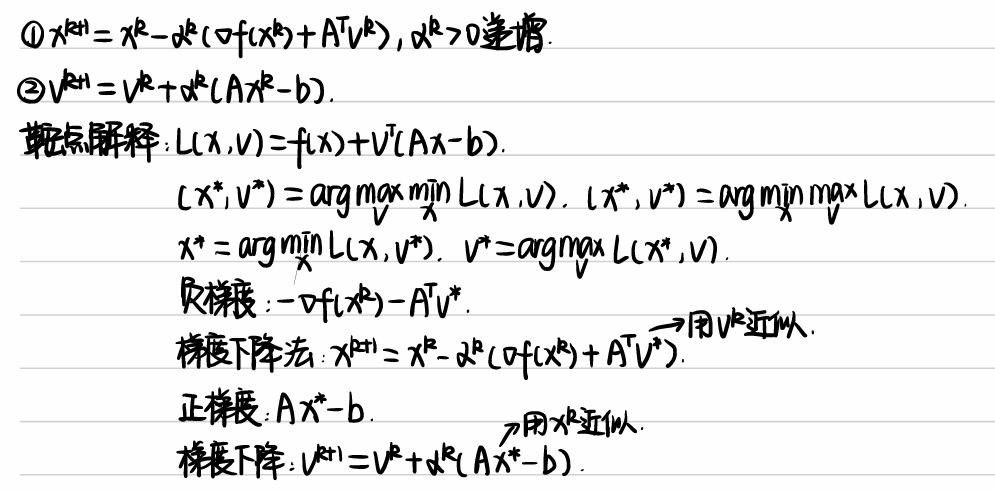 ① x^{k+1} = x^k - α^k(∇f(x^k) + A^T v^k), α^k > 0 递增.
② v^{k+1} = v^k + α^k(Ax^k - b).
鞍点解释: L(x, v) = f(x) + v^T(Ax - b).
(x*, v*) = arg max_v min_x L(x, v). (x*, v*) = arg min_x max_v L(x, v).
x* = arg min_x L(x, v*). v* = arg max_v L(x*, v).
负梯度: -∇f(x^k) - A^T v*.
→用v^k近似.
梯度下降法: x^{k+1} = x^k - α^k(∇f(x^k) + A^T v*).
正梯度: Ax* - b.
→用x^k近似.
梯度下降: v^{k+1} = v^k + α^k(Ax* - b).